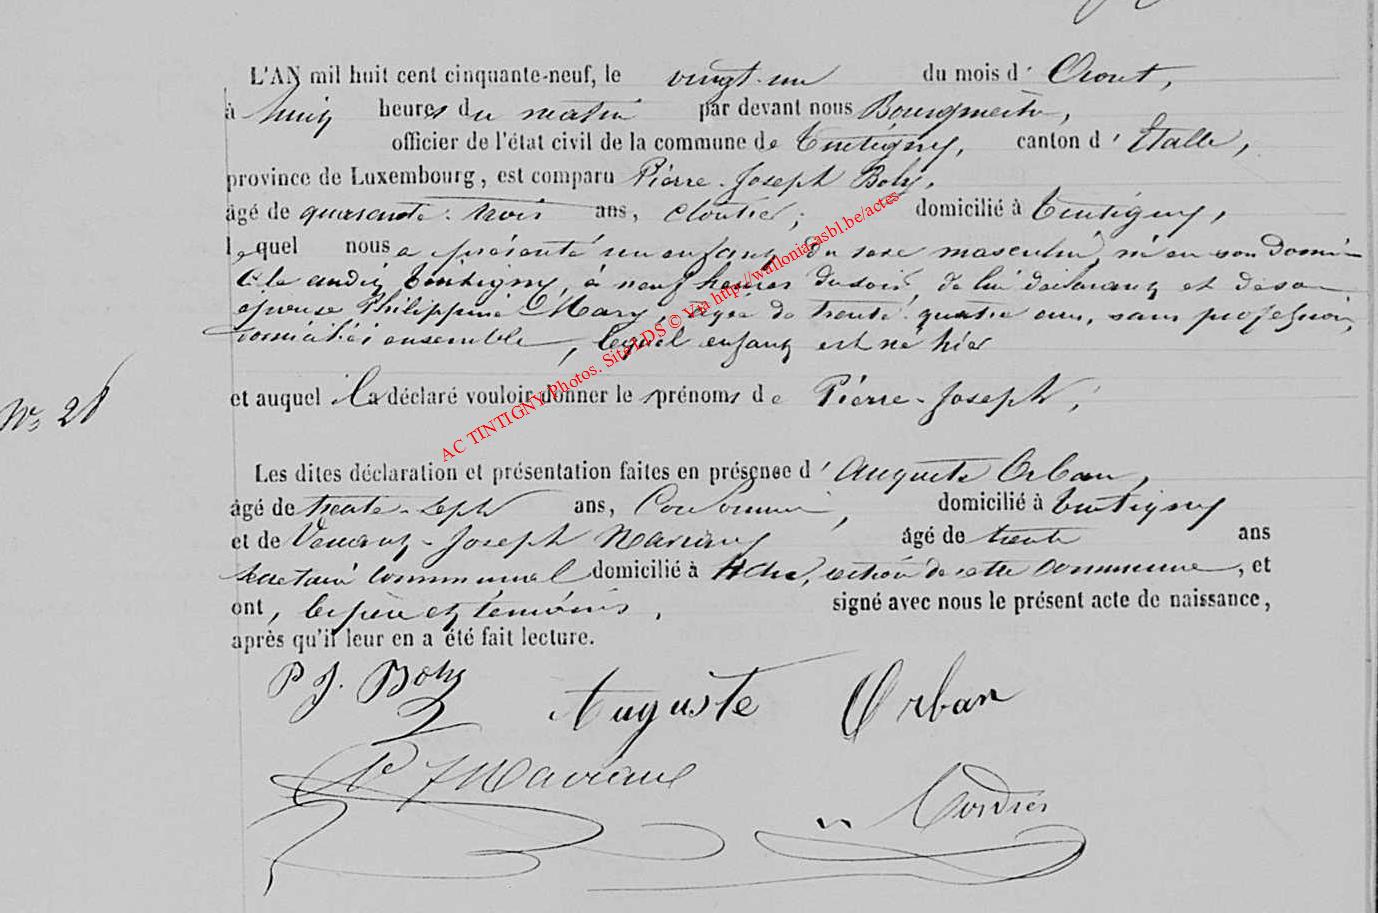 L'AN mil huit cent cinquante-neuf, le vingt-un du mois d' Aout,
à huit heures du matin par devant nous Bourgmestre,
officier de l'état civil de la commune de Tintigny, canton d' Etalle,
province de Luxembourg, est comparu Pierre-Joseph Boly,
âgé de quarante-trois ans, cloutier, domicilié à Tintigny,
lequel nous a présenté un enfant du sexe masculin, né en son domi-
cile audit Tintigny, à neuf heures du soir, de lui déclarant et de son
épouse Philippine Mary, agée de trente quatre ans, sans profession,
domiciliés ensemble, lequel enfant est né hier
et auquel il a déclaré vouloir donner les prénoms de Pierre-Joseph,
N° 28
Les dites déclaration et présentation faites en présence d' Auguste Orban,
âgé de trente-sept ans, domicilié à Tintigny
et de -Joseph âgé de trente ans
secrétaire communal domicilié à section de cette commune, et
ont, le père et témoins, signé avec nous le présent acte de naissance,
après qu'il leur en a été fait lecture.
P J. Boly
Auguste Orban
AC TINTIGNY Photos. Site LDS © Via http://wallonia-asbl.be/actes